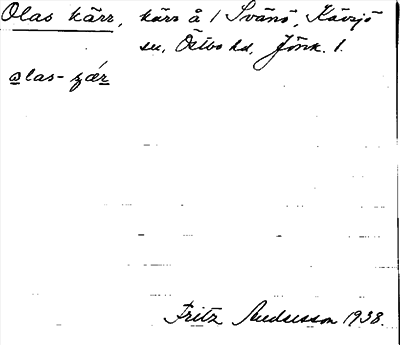 Olas kärr, kärr å / Svänö, Kävsjö
sn, Östbo hd, Jönk. l.
olas-çær
Fritz Andersson 1938.